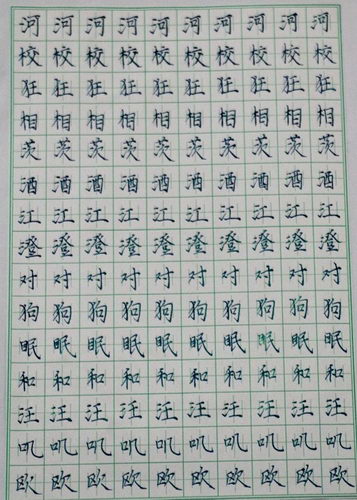 河河河河河河河河河河
校校校校校校校校校校
狂狂狂狂狂狂狂狂狂狂
相相相相相相相相相相
茨茨茨茨茨茨茨茨茨茨
酒酒酒酒酒酒酒酒酒酒
江江江江江江江江江江
澄澄澄澄澄澄澄澄澄澄
对对对对对对对对对对
狗狗狗狗狗狗狗狗狗狗
眠眠眠眠眠眠眠眠眠眠
和和和和和和和和和和
汪汪汪汪汪汪汪汪汪汪
叽叽叽叽叽叽叽叽叽叽
欧欧欧欧欧欧欧欧欧欧